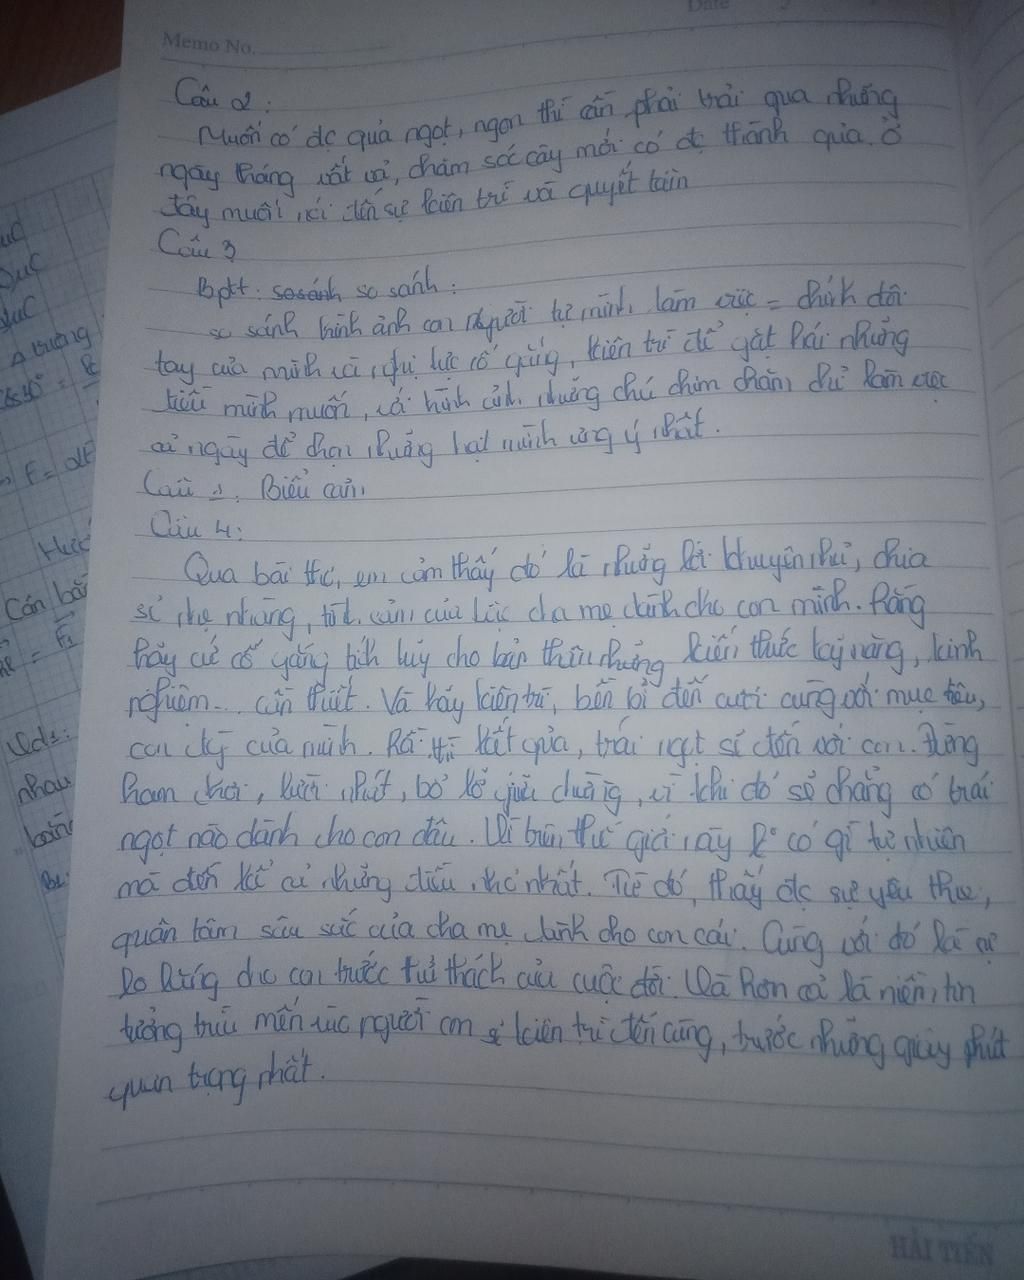 Date
Memo No.
Câu 2:
Muốn có đc quả ngọt, ngon thì cần phải trải qua những
ngày tháng vất vả, chăm sóc cây mới có đc thành quả. Ở
đây muốn nói đến sự kiên trì và quyết tâm
Câu 3
Bptt: so sánh so sánh:
so sánh hình ảnh con người tự mình làm việc = chính đôi
tay của mình và nghị lực cố gắng, kiên trì để gặt hái những
điều mình muốn, với hình ảnh những chú chim chăm chỉ làm việc
cả ngày để chọn những hạt mình ưng ý nhất.
Câu 1. Biểu cảm
Câu 4:
Qua bài thơ, em cảm thấy đó là những lời khuyên nhủ, chia
sẻ nhẹ nhàng, tình cảm của bậc cha mẹ dành cho con mình. Rằng
hãy cứ cố gắng tích lũy cho bản thân những kiến thức kỹ năng, kinh
nghiệm... cần thiết. Và hãy kiên trì, bền bỉ đến cuối cùng với mục tiêu,
của mình. Rồi thì kết quả, trái ngọt sẽ đến với con. Đừng
ham chơi, lười nhát, bỏ lỡ giữa chừng, vì khi đó sẽ chẳng có trái
ngọt nào dành cho con đâu. Vì trên thế giới này k° có gì tự nhiên
mà đến kể cả những điều nhỏ nhất. Từ đó, thấy đc sự yêu thương,
quan tâm sâu sắc của cha mẹ dành cho con cái. Cùng với đó là sự
lo lắng cho con trước thử thách của cuộc đời. Và hơn cả là niềm tin
tưởng trìu mến việc người con sẽ kiên trì đến cùng, trước những giây phút
quan trọng nhất.
HẢI TIẾN